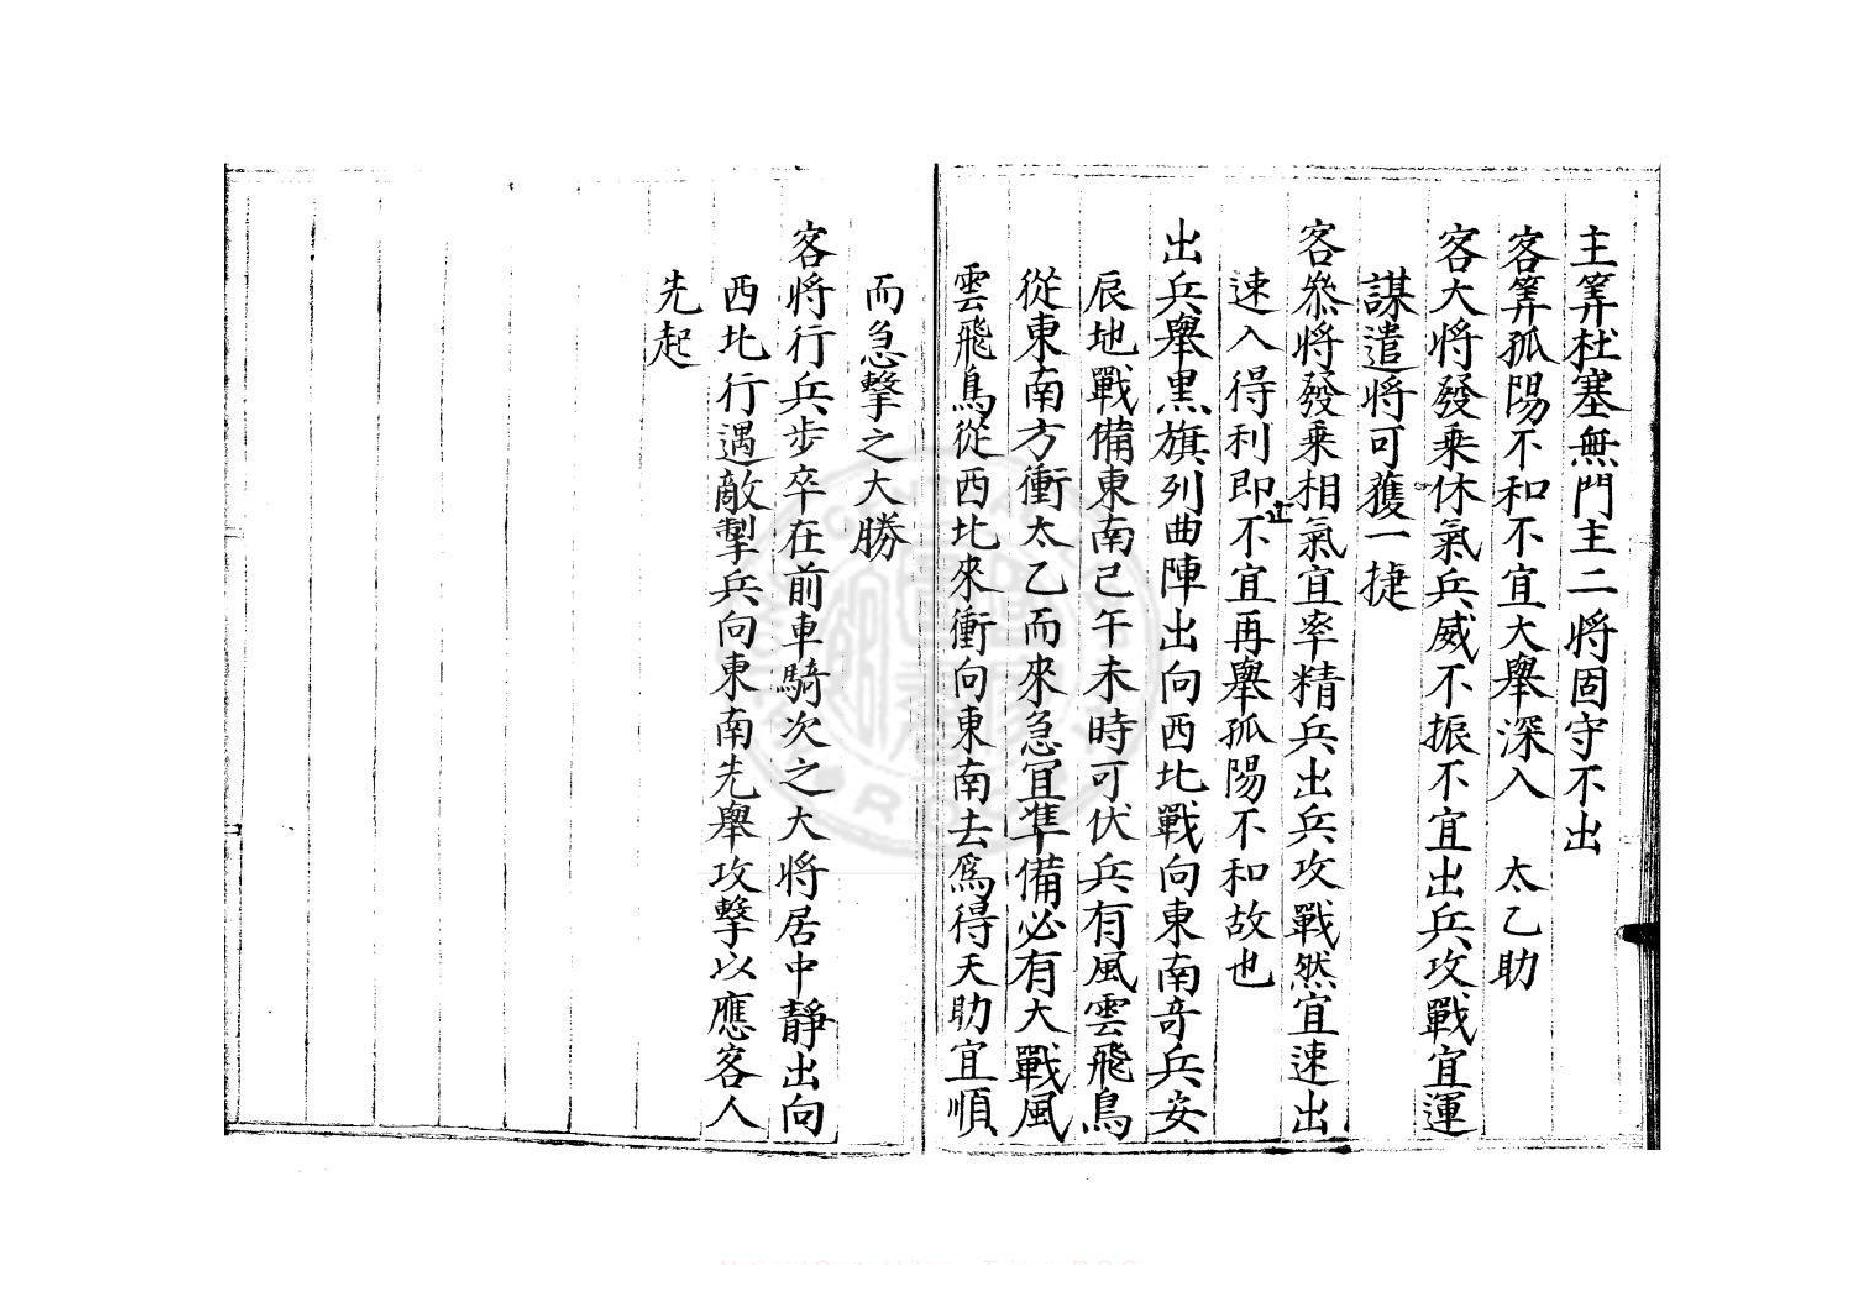 主筭杜塞無門主二将固守不出
客筭孤陽不和不宜大舉深入　太乙助
客大将發乗休氣兵威不振不宜出兵攻戰宜運
謀遣将可獲一捷
客叅将發乗相氣宜率精兵出兵攻戰然宜速出
速入得利即止不宜再舉孤陽不和故也
出兵舉黒旗列曲陣出向西北戰向東南竒兵安
辰地戰備東南己午未時可伏兵有風雲飛鳥
從東南方衝太乙而來急冝凖備必有大戰風
雲飛鳥從西北來衝向東南去為得天助宜順
而急擊之大勝
客将行兵步卒在前車騎次之大将居中靜出向
西北行遇敵掣兵向東南先舉攻擊以應客人
先起